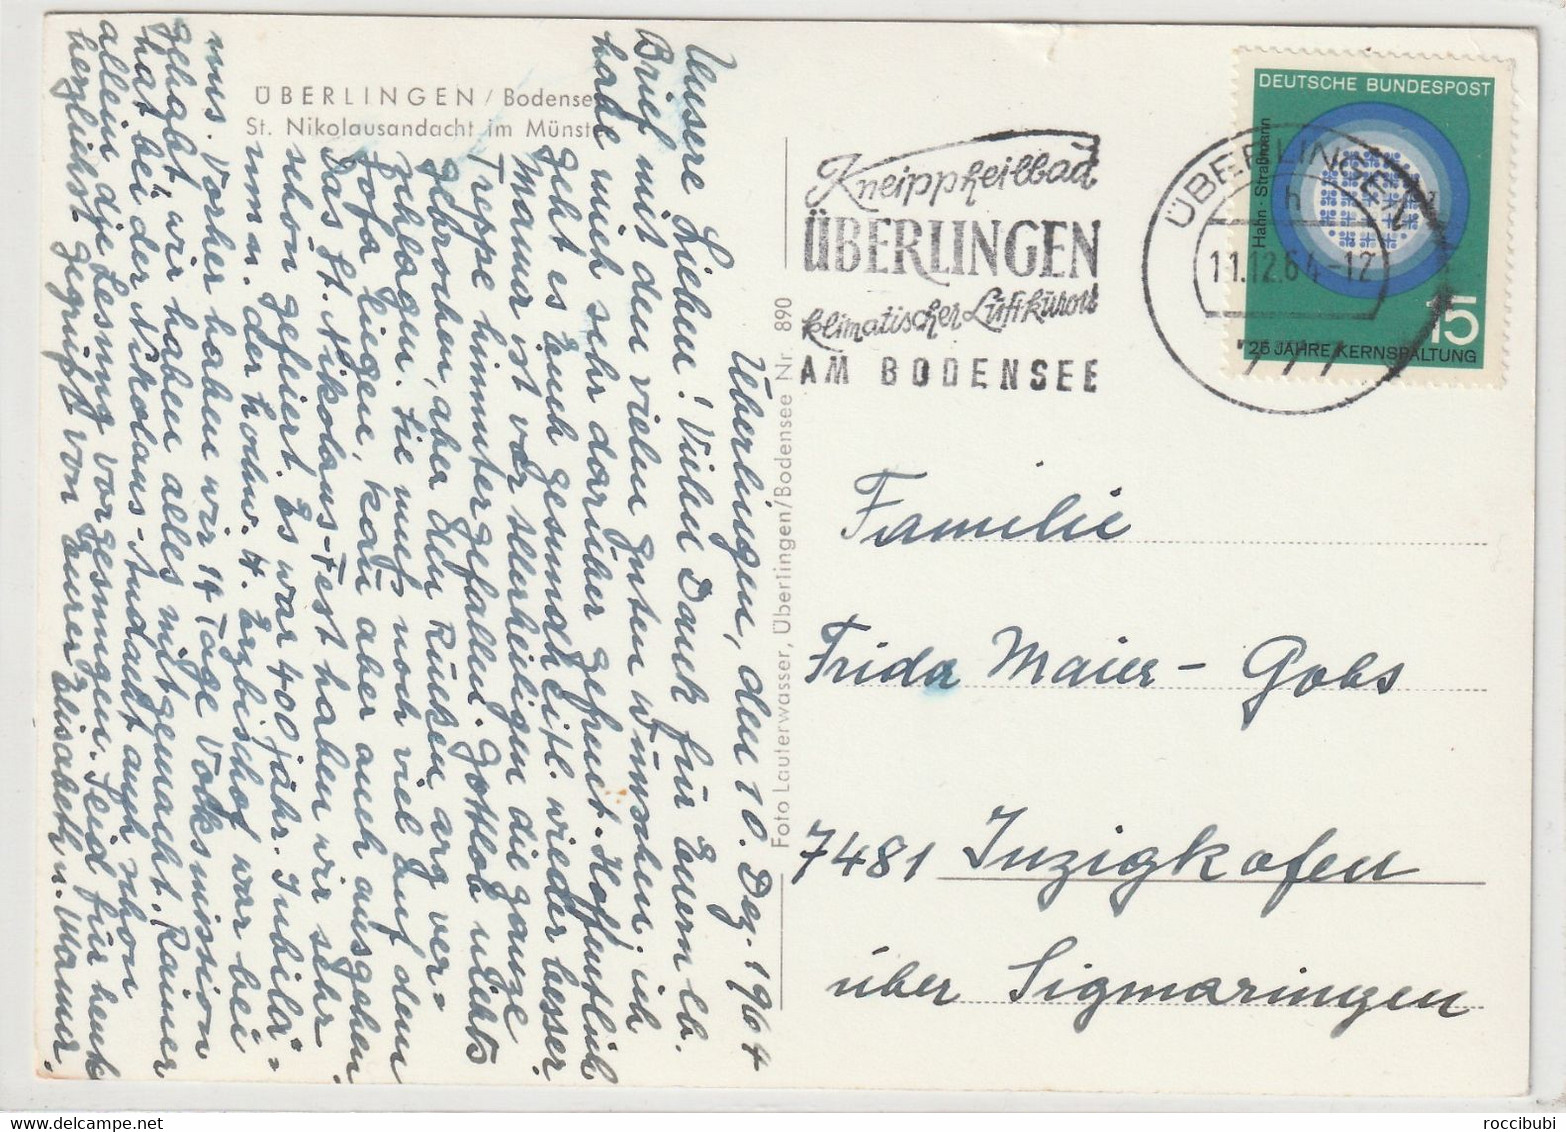 ÜBERLINGEN / Bodensee
St. Nikolausandacht im Münster
Überlingen, den 10. Dez. 1964
Unsere Lieben! Vielen Dank für Euern lb.
Brief mit den vielen guten Wünschen, ich
habe mich sehr darüber gefreut. Hoffentlich
geht es Euch gesundheitl. wieder besser.
Mama ist vor Allerheiligen die ganze
Treppe hinuntergefallen. Gottlob nichts
gebrochen, aber den Rücken arg ver=
schlagen. Sie muß noch viel auf dem
Sofa liegen, kann aber auch ausgehen.
Das St. Nikolaus-Fest haben wir sehr
schon gefeiert. Es war 400 jähr. Jubilä=
um u. der hochw. H. Erzbischof war bei
uns. Vorher haben wir 14 Tage Volksmission
gehabt, wir haben alles mitgemacht. Rainer
hat bei der Nikolaus-Andacht auch schon
allein die Lesung vorgesungen. Seid für heute
herzlichst gegrüßt von Eurer Elisabeth u. Mama.
Foto Lauterwasser, Überlingen/Bodensee Nr. 890
Kneippheilbad
ÜBERLINGEN
klimatischer Luftkurort
AM BODENSEE
ÜBERLINGEN
h
11.12.64-12
DEUTSCHE BUNDESPOST
Hahn · Straßmann
15
25 JAHRE KERNSPALTUNG
Familie
Frida Maier - Gobs
7481 Inzigkofen
über Sigmaringen
roccibubi